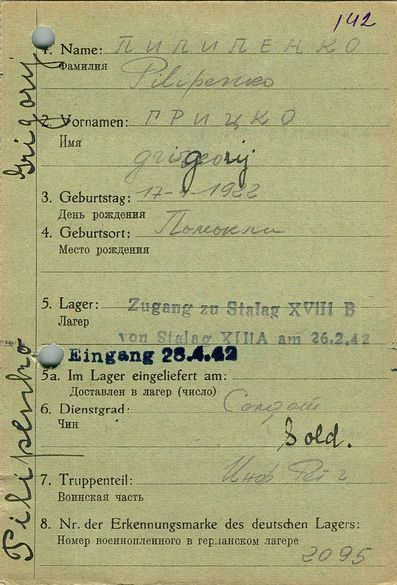 142
1. Name: ПИЛИПЕНКО
Фамилия
Pilipenko
2. Vornamen: ГРИЦКО
Имя
grigorij
3. Geburtstag: 1922
День рождения
4. Geburtsort: Помокли
Место рождения
5. Lager: Zugang zu Stalag XVIII B
Лагер
von Stalag XIIIA am 26.2.42
Eingang 28.4.42
5a. Im Lager eingeliefert am:
Доставлен в лагер (число)
6. Dienstgrad: Солдат
Чин
Sold.
7. Truppenteil: Инф
Воинская часть
8. Nr. der Erkennungsmarke des deutschen Lagers:
Номер военнопленного в германском лагере
2095
Pilipenko Grigorij